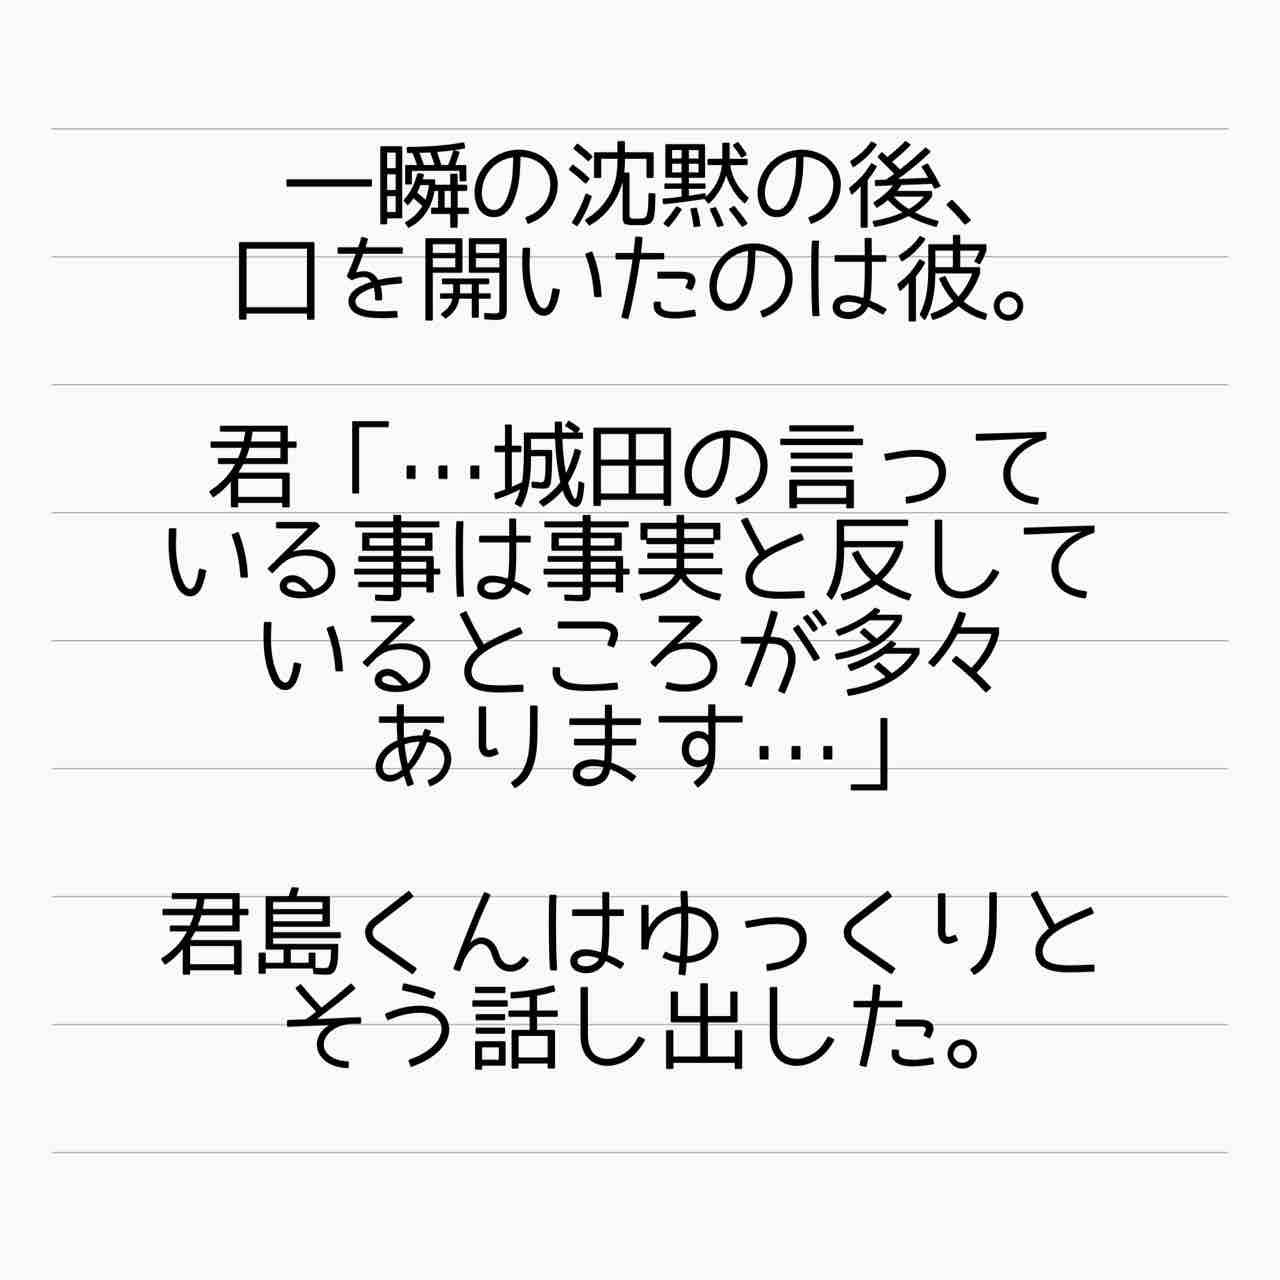 一瞬の沈黙の後、
口を開いたのは彼。
君「…城田の言って
いる事は事実と反して
いるところが多々
あります…」
君島くんはゆっくりと
そう話し出した。